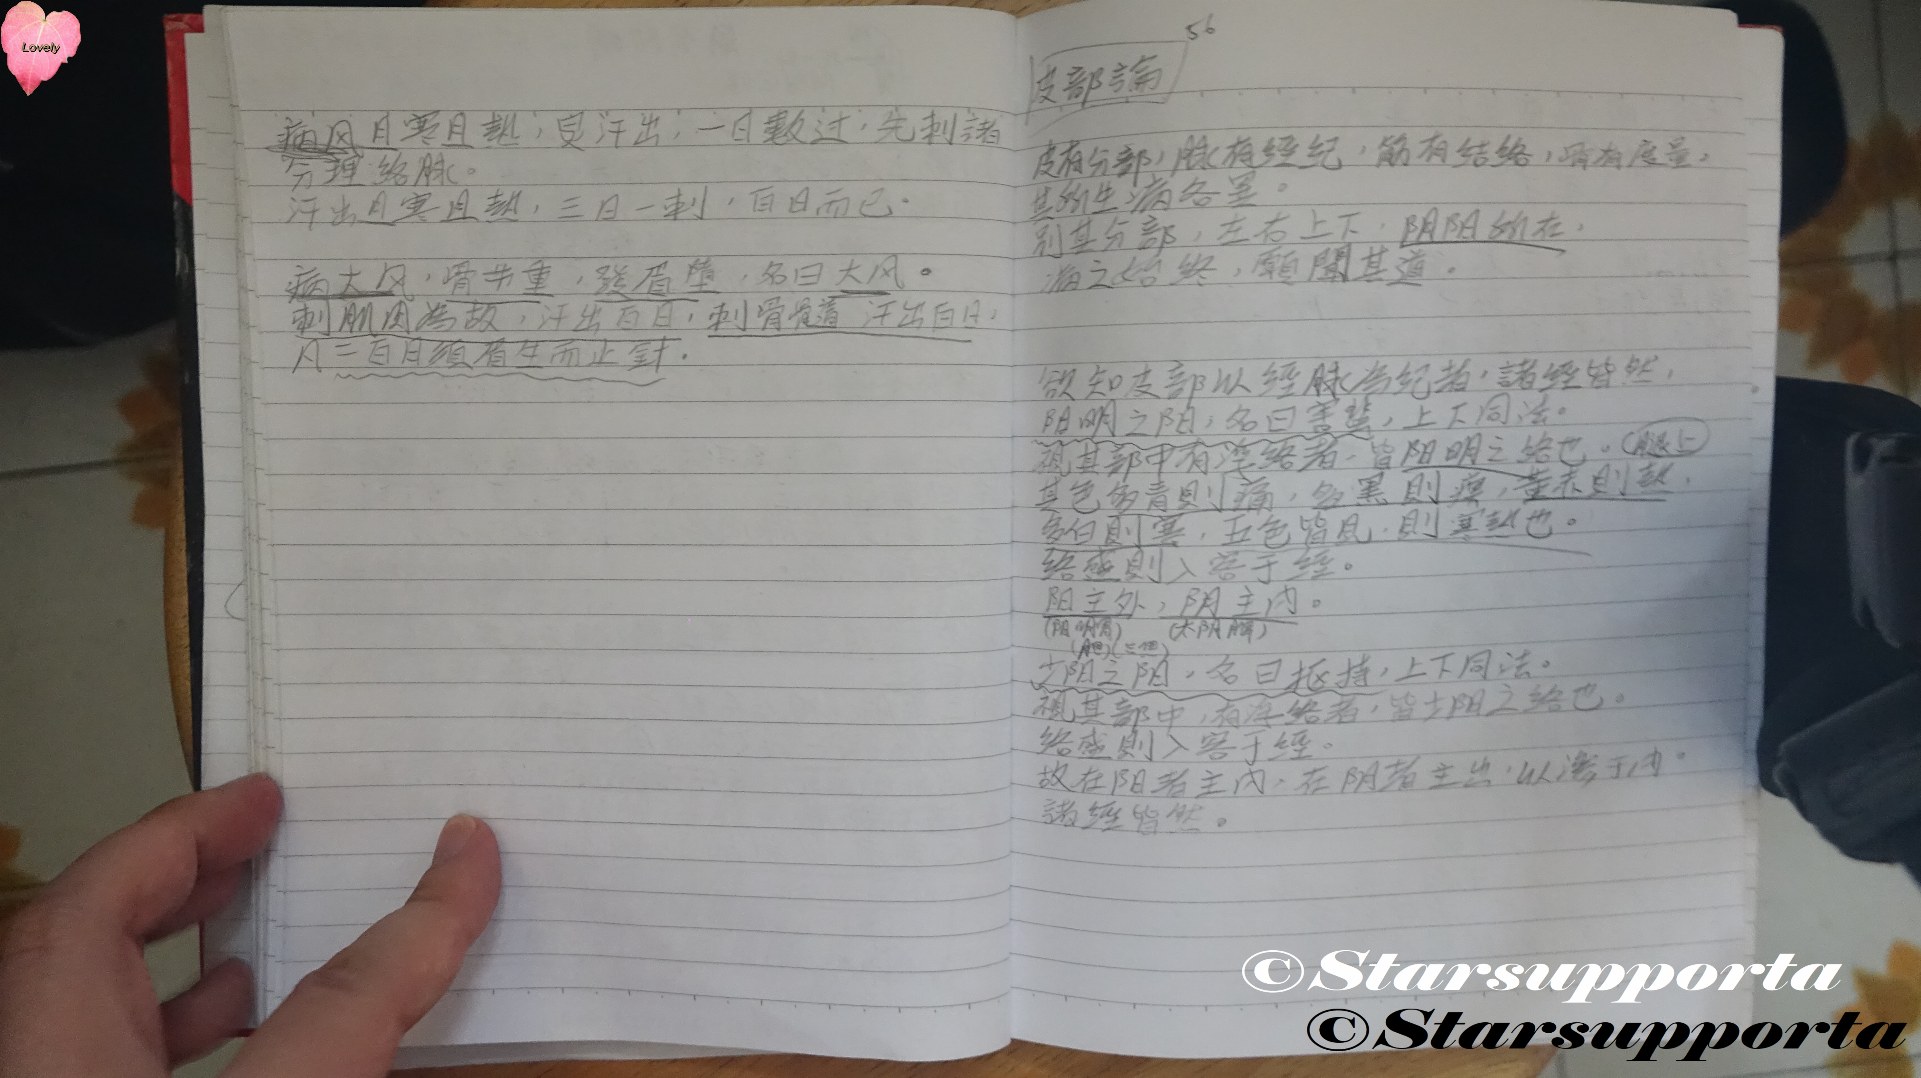 Lovely
病风且寒且熱,炅汗出,一日數过,先刺諸
分理絡脉。
汗出且寒且熱,三日一刺,百日而已。
病大风,骨节重,鬚眉墮,名曰大风。
刺肌肉為故,汗出百日,刺骨髓 汗出百日,
凡二百日须眉生而止針.
56
皮部論
皮有分部,脉有經紀,筋有結絡,骨有度量,
其所生病各異。
别其分部,左右上下,阴阳所在,
病之始終,願聞其道.
欲知皮部以經脉為纪者,諸經皆然,
阳明之阳,名曰害蜚,上下同法。
視其部中有浮絡者,皆阳明之絡也。(腿上
其色多青則痛,多黑則痺,黄赤則熱,
多白則寒,五色皆見,則寒熱也。
絡盛則入客于經。
阳主外,阴主内。
(阳明胃) (太阴脾)
(胆)(三焦)
少阳之阳,名曰枢持,上下同法。
視其部中,有浮絡者,皆少阳之絡也。
絡盛則入客于經。
故在阳者主内,在阴者主出,以滲于内。
諸經皆然。
©Starsupporta
©Starsupporta